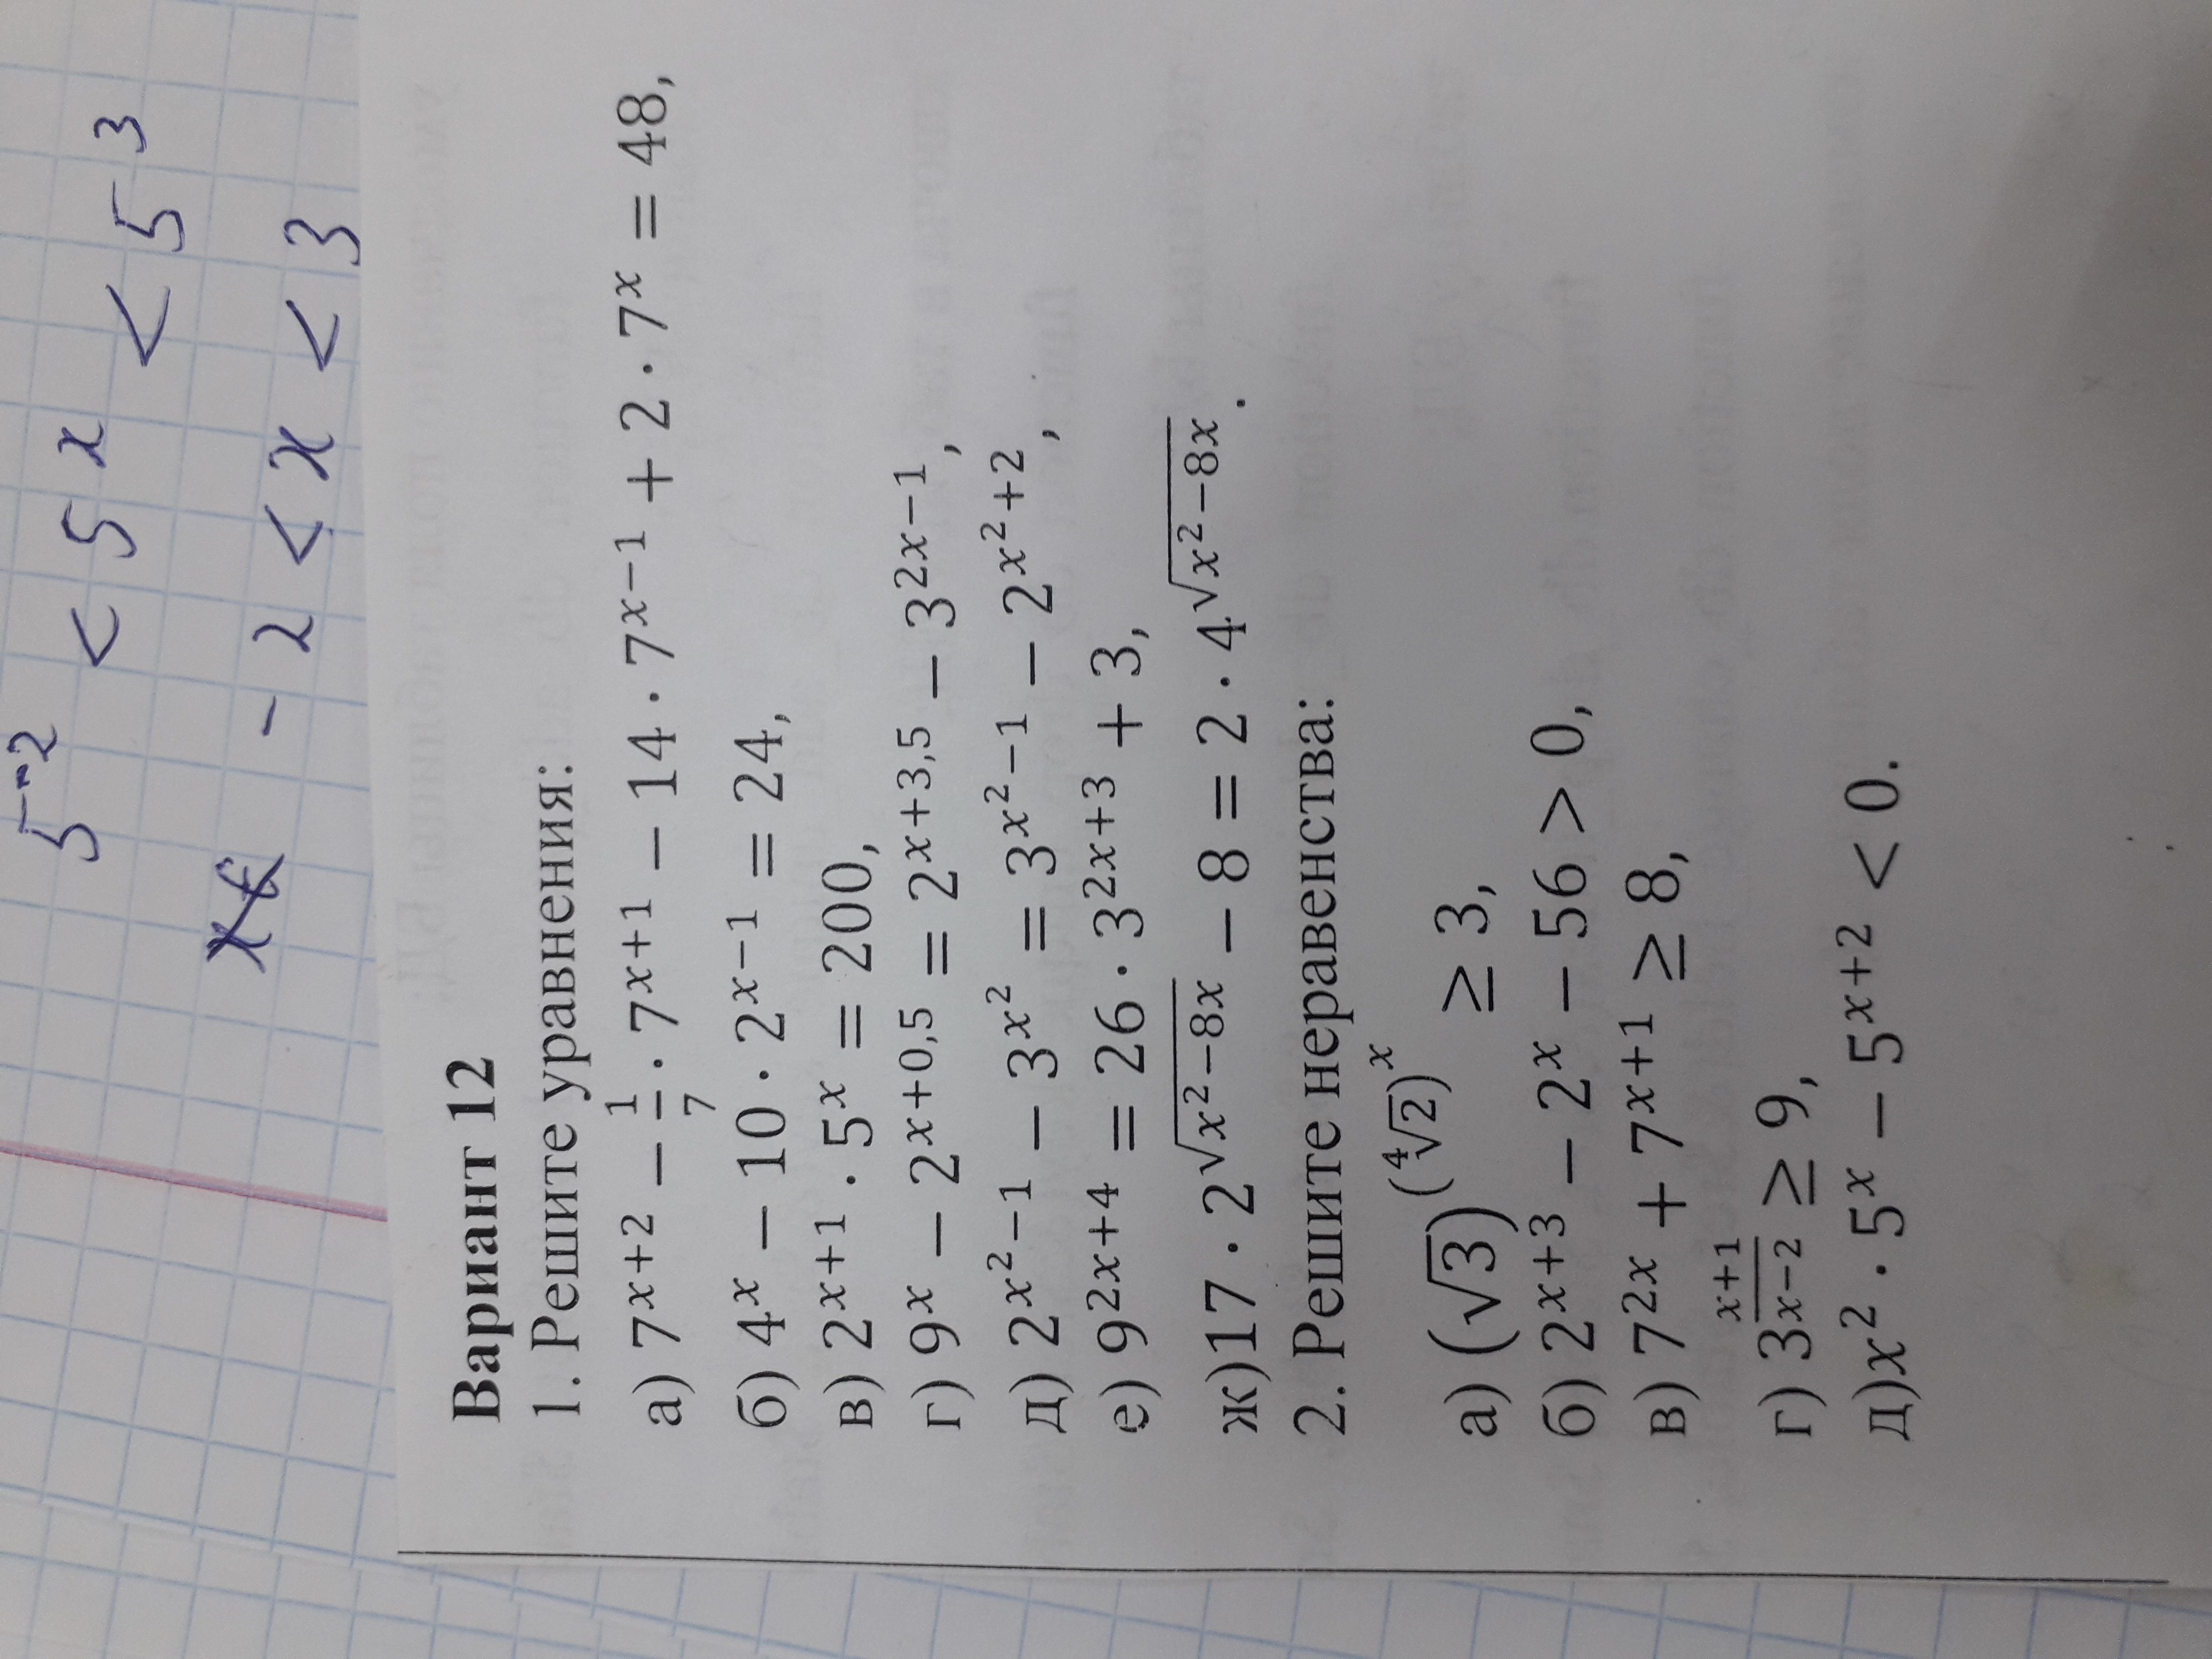 5⁻² < 5ˣ < 5³
-2 < x < 3
Вариант 12
1. Решите уравнения:
а) 7ˣ⁺² − 1/7 · 7ˣ⁺¹ − 14 · 7ˣ⁻¹ + 2 · 7ˣ = 48,
б) 4ˣ − 10 · 2ˣ⁻¹ = 24,
в) 2ˣ⁺¹ · 5ˣ = 200,
г) 9ˣ − 2^(x+0,5) = 2^(x+3,5) − 3²ˣ⁻¹,
д) 2^(x²−1) − 3^(x²) = 3^(x²−1) − 2^(x²+2),
е) 9²ˣ⁺⁴ = 26 · 3²ˣ⁺³ + 3,
ж)17 · 2^√(x²−8x) − 8 = 2 · 4^√(x²−8x).
2. Решите неравенства:
а) (√3)^(∜2)ˣ ≥ 3,
б) 2ˣ⁺³ − 2ˣ − 56 > 0,
в) 7²ˣ + 7ˣ⁺¹ ≥ 8,
г) 3^((x+1)/(x−2)) ≥ 9,
д)x² · 5ˣ − 5ˣ⁺² < 0.